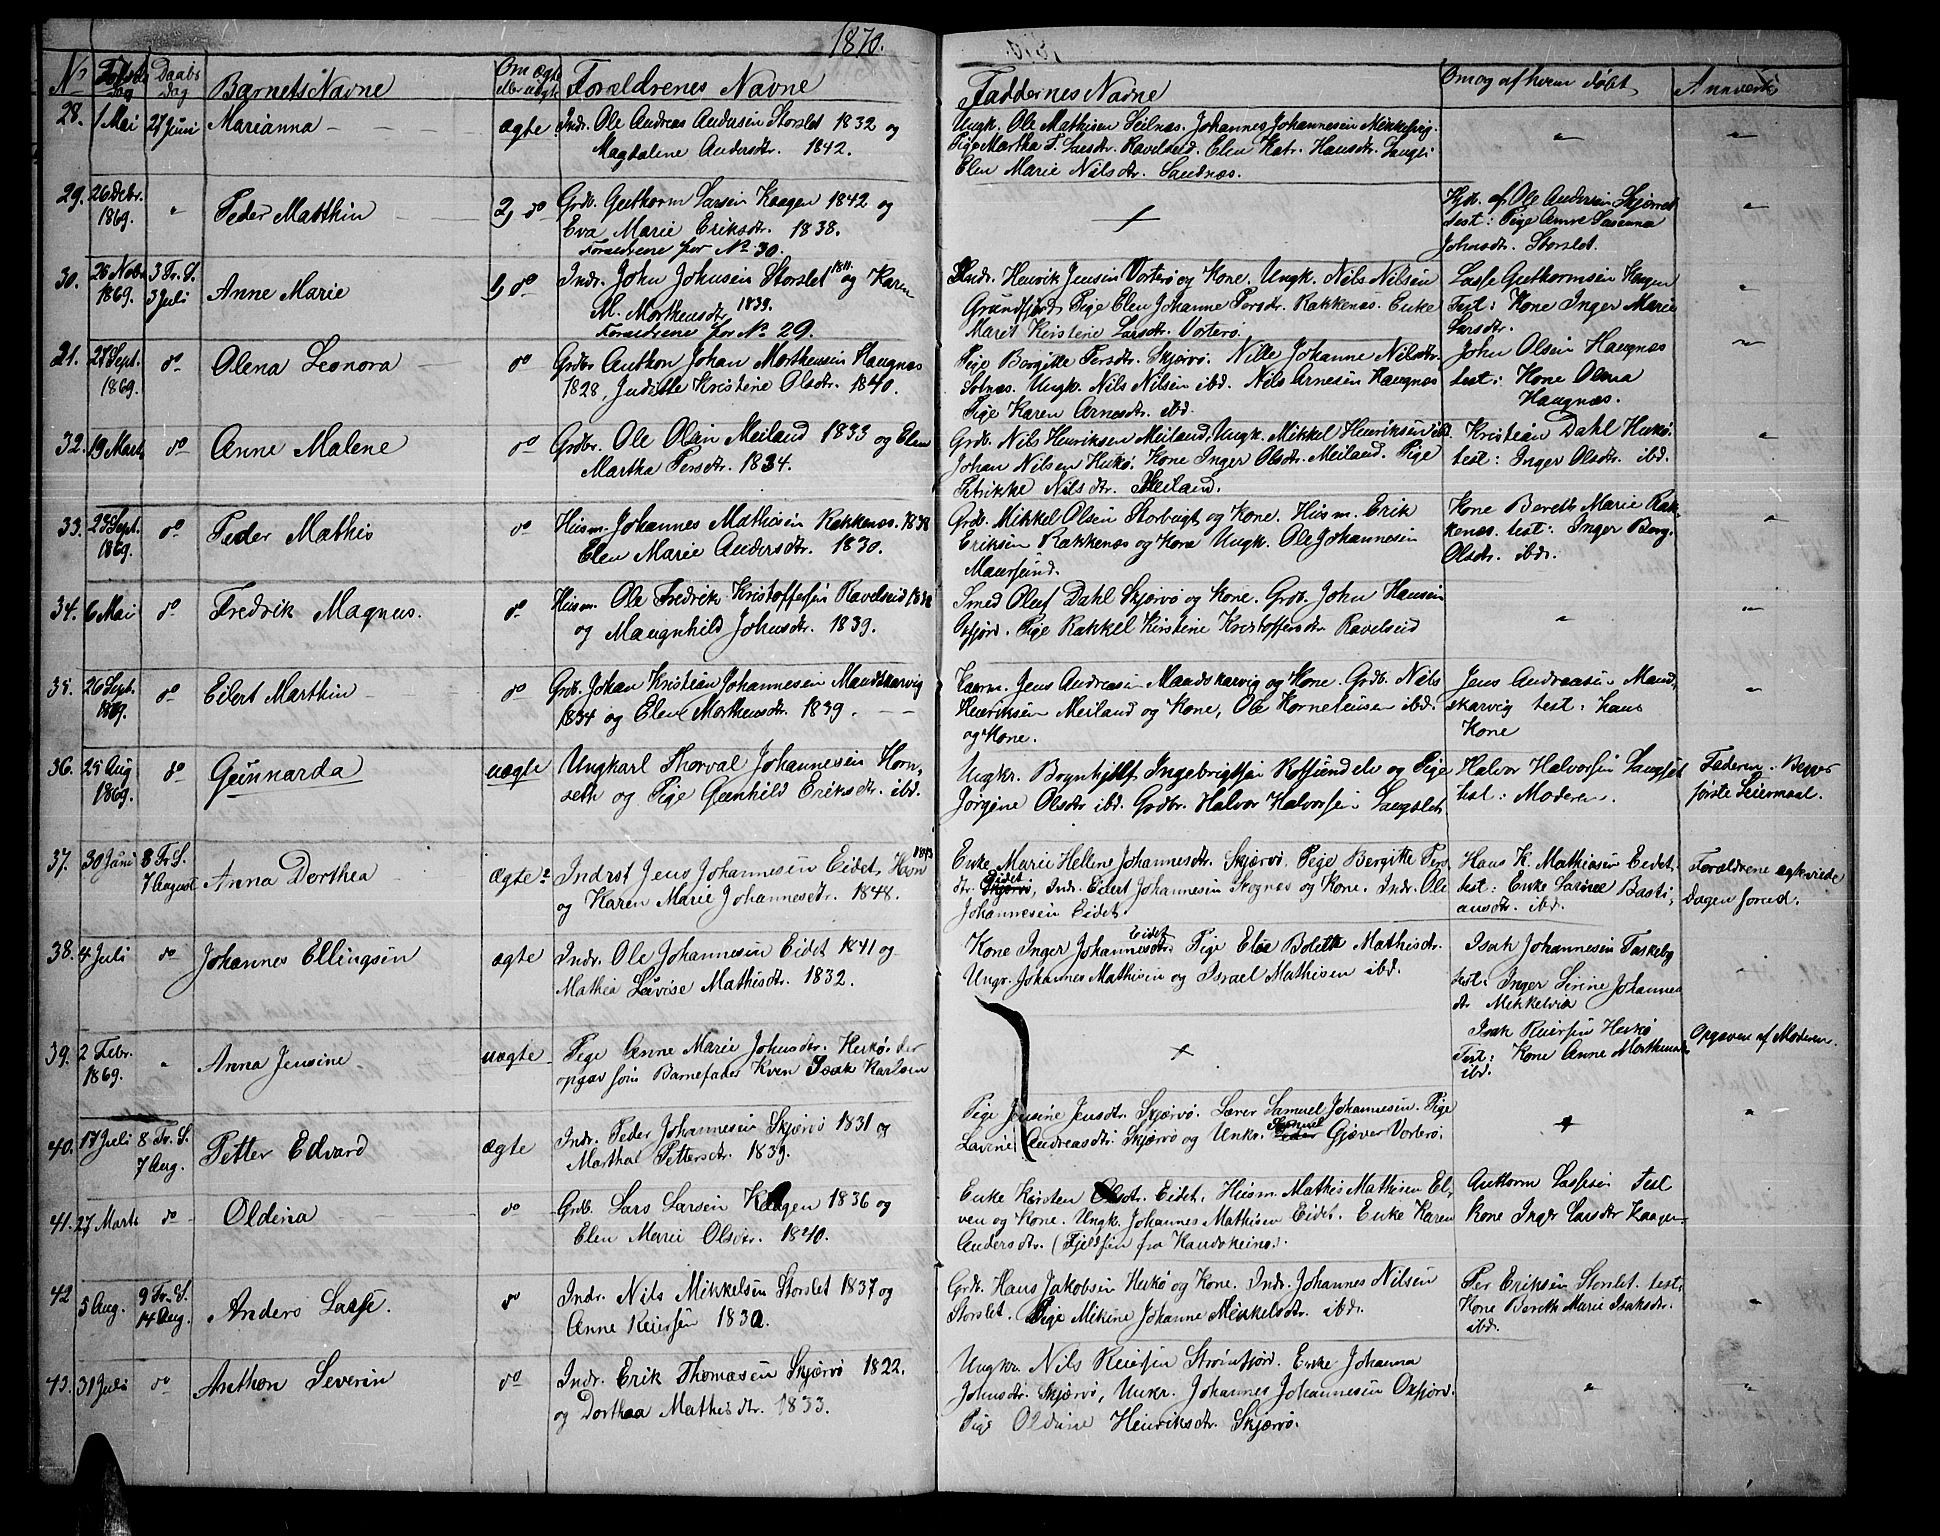 1870.
No Fødsels Dag Daabs Dag Barnets Navne Om Ægte eller uægte Forældrenes Navne Faddernes Navne Om og af hvem døbt Anmærk.
28. 1 Mai 27 Juni Marianna ægte Indr. Ole Andreas Andersen Storslet 1832 og
Magdaline Andersdtr. 1842.
Ungk. Ole Mathisen Seilnæs. Johannes Johannesen Mikkelvig.
Pige Martha T. Larsdtr. Ravelseid. Elen Katr. Hansdtr. Langli
Elen Marie Nilsdtr. Sandnæs.
29. 26 Debr. 1869. " Peder Matthin 2, do Grdb. Guthorm Larsen Kaagen 1842 og
Eva Marie Eriksdtr. 1838.
Forældrene for No 30.
Hjd. af Ole Andersen Skjærvø
test: Pige Anne Susanna
Johnsdtr. Storslet.
30. 28 Nobr 1869. 3 Tr. S. 3 Juli Anne Marie 1, do Indr. John Johnsen Storslet 1811. og Karen
M. Morthensdtr. 1839.
Forældrene for No 29.
Indr. Henrik Jensen Vorterø og Kone. Ungk. Nils Nilsen
Grundfjord. Pige Elen Johanne Persdtr. Rakkenæs. Enke
Marit Kristine Larsdtr. Vorterø.
Lasse Guthormsen Kaagen
Test: Kone Inger Marie
Larsdtr.
21. 27 Sept. 1869. do Olena Leonora do Grdbr. Anthon Johan Morthensen Haugnæs
1828, Judithe Kristine Olsdtr. 1840.
Pige Bergitte Persdtr. Skjærvø. Nille Johanne Nilsdtr.
Solnæs. Ungk. Nils Nilsen ibd. Nils Arnesen Haugnæs
Pige Karen Arnesdtr. ibd.
John Olsen Haugnæs
test: Kone Olena
Haugnæs.
32. 19 Marts do Anne Malene do Grdbr. Ole Olsen Meiland 1833 og Elen
Martha Persdtr. 1834.
Grdb. Nils Henriksen Meiland, Ungk. Mikkel Henriksen ibd.
Johan Nilsen Hukø. Kone Inger Olsdtr. Meiland. Pige
Petrikke Nilsdtr. Meiland.
Kristian Dahl Hukø.
test: Inger Olsdtr. ibd.
33. 23 Sept. 1869. do Peder Mathis do Husm. Johannes Mathisen Rakkenæs. 1838
Elen Marie Andersdtr. 1830.
Grdb. Mikkel Olsen Storbugt og Kone. Husm. Erik
Eriksen Rakkenæs og Kone Ungk. Ole Johannesen
Maursund.
Kone Bereth Marie Rak-
kenæs. test: Inger Berg.
Olsdtr. ibd.
34. 6 Mai do Fredrik Magnus. do Husm. Ole Fredrik Kristoffersen Ravelseid 1832
og Maugnhild Johnsdtr. 1839.
Smed Oluf Dahl Skjærvø og Kone. Grdb. John Hansen
Oxfjord. Pige Rakkel Kirstine Kristoffersdtr. Ravelseid
35. 26 Sept. 1869. do Eilert Marthin do Grdb. Johan Kristian Johannesen Mandskarvig
1834 og Elen Morthensdtr. 1839.
Jens Andreasen Maadskarvig og Kone. Grdb. Nils
Henriksen Meiland og Kone, Ole Korneliusen ibd.
og Kone.
Jens Andreasen Mand-
skarvig test: hans
Kone
36. 25 Aug 1869. do Gunnarda uægte Ungkarl Thorval Johannesen Horn-
seth og Pige Gunhild Eriksdtr. ibd.
Ungkr. Brynhjelf Ingebrigtsen Rotsundelv og Pige
Jørgine Olsdtr ibd. Grdbr. Halvor Halvorsen Langslet
Halvor Halvorsen Langslet
test: Moderen.
Faderen. Begges
første Leiermaal.
37. 30 Juni 8 Tr. S. 7 August Anna Dorthea ægte Indrst Jens Johannesen Eidet, Havn 1843
og Karen Marie Johannesdtr. 1848.
Enke Marie Helene Johannesdtr. Skjærvø. Pige Bergitte Pers-
dtr. Eidet, Indr. Eilert Johannesen Skognæs og Kone. Indr. Ole
Johannesen Eidet.
Hans K. Mathiasen Eidet,
test: Enke Sarine Basti-
ansdtr. ibd.
Forældrene ægteviede
Dagen forud.
38. 4 Juli do Johannes Ellingsen ægte Indr. Ole Johannesen Eidet 1841 og
Mathea Lovise Mathisdtr. 1832.
Kone Inger Johannesdtr. Eidet Pige Elie Bolette Mathisdtr.
Ungr. Johannes Mathisen og Israel Mathisen ibd.
Isak Johannesen Taskeby
test: Inger Sirine Johannes
dtr. Mikkelvik
39. 2 Febr. 1869. " Anna Jensine uægte Pige Anne Marie Johnsdtr. Hukø. der
opgav som Barnefader Kven Isak Karlsen
Isak Reiersen Hukø
Test: Kone Anne Morthensd.
ibd.
Opgaven af Moderen.
40. 17 Juli 8 Tr. S. 7 Aug. Petter Edvard ægte Indr. Peder Johannesen Skjærvø 1831 og
Martha Pettersdtr. 1839.
Pige Jensine Jensdtr. Skjærvø. Lærer Samuel Johannesen. Pige
Lavine Andreasdtr. Skjærvø og Unkr. Samuel Gjæver Vorterø.
41. 27 Marts do Oldina do Grdb. Lars Larsen Kaagen 1836 og
Elen Marie Olsdtr. 1840.
Enke Kirsten Olsdtr. Eidet, Husm. Mathis Mathisen El-
ven og Kone. Ungk. Johannes Mathisen Eidet. Enke Karen
Andersdtr. (Fjeldfin fra Kautokeino).
Guthorm Lassesen Test
Kone Inger Larsdtr Kaagen
42 5 Aug. 9 Tr. S. 14 Aug. Anders Lasse do Indr. Nils Mikkelsen Storslet 1837 og
Anne Reiersen 1830.
Grdb. Hans Jakobsen Hukø og Kone. Indr. Johannes Nilsen
Storslet. Pige Mikine Johanne Mikkelsdtr. ibd.
Per Eriksen Storslet. test:
Kone Bereth Marie Isaksdtr.
ibd.
43. 31 Juli do Anthon Severin do Indr. Erik Thomasen Skjærvø 1822.
og Dorthea Mathisdtr. 1833.
Ungkr. Nils Reiersen Strømfjord. Enke Johanna
Johnsdtr. Skjærvø, Unkr. Johannes Johannesen Oxfjord.
Pige Oldine Henriksdtr. Skjærvø.